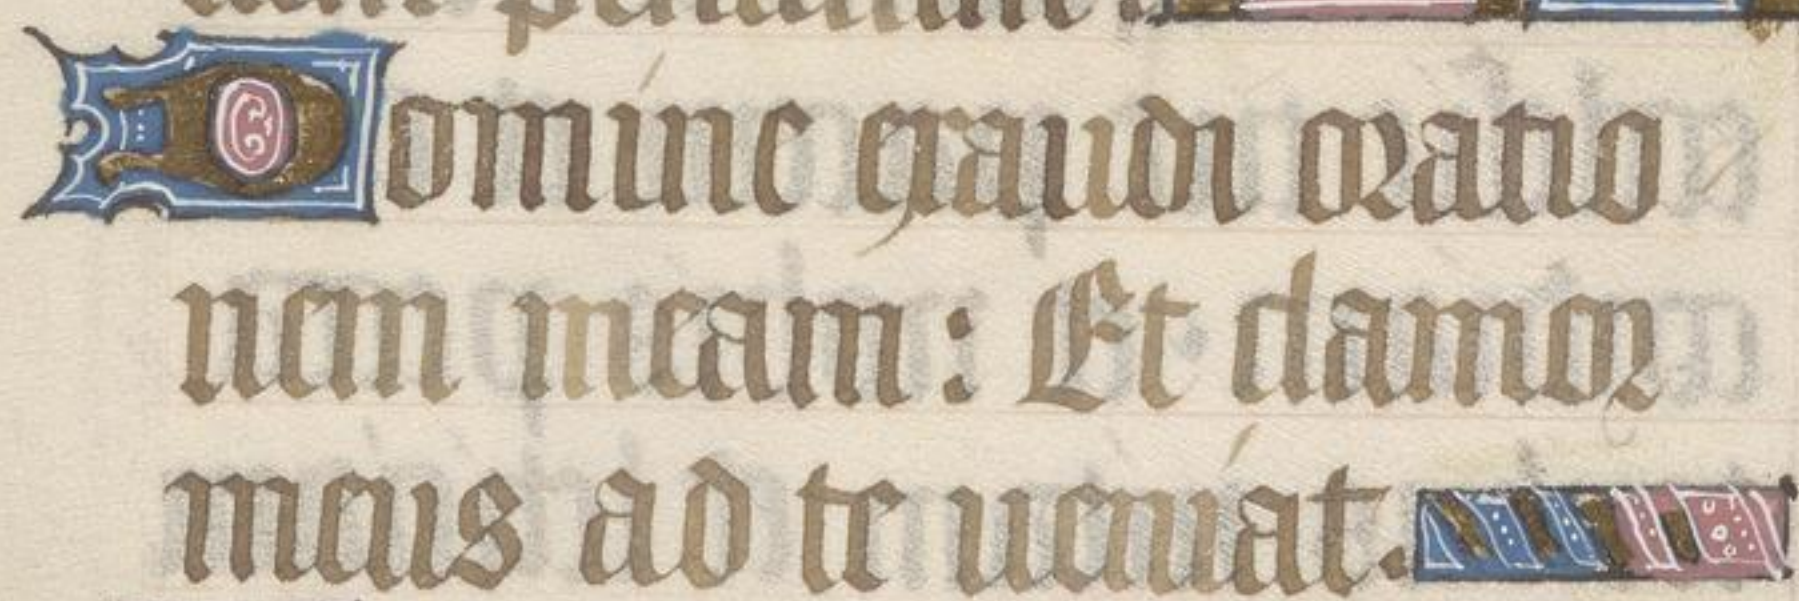 Domine exaudi oratio
nem meam: Et clamor
meus ad te ueniat.